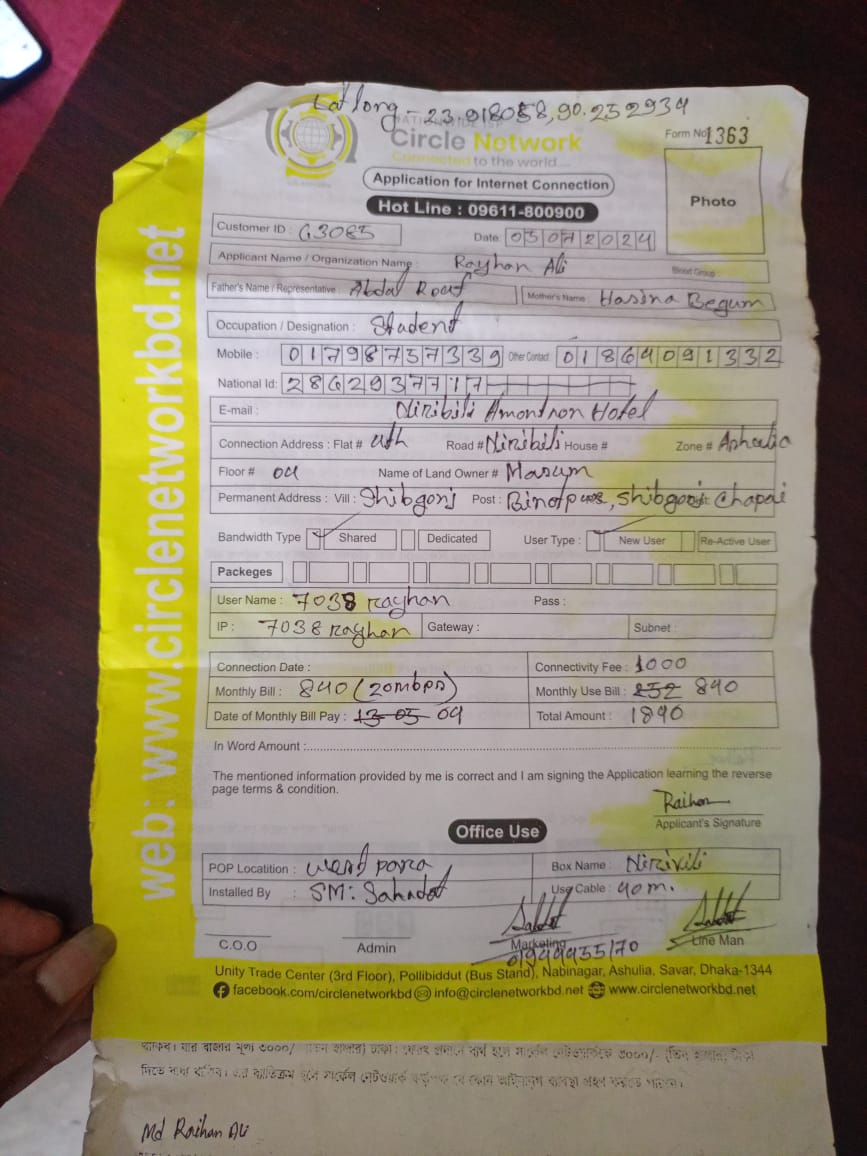 Lat long - 23.918058, 90.252934
NATIONWIDE ISP
Circle Network
Connected to the world....
Form No 1363
Application for Internet Connection
Photo
Hot Line : 09611-800900
Customer ID : G3085
Date: 03072024
Applicant Name / Organization Name : Rayhan Ali
Blood Group :
Father's Name / Representative : Abdal Rout
Mother's Name : Hasina Begum
Occupation / Designation : Student
Mobile : 01798757339 Other Contact : 01864091332
National Id: 2862937717
E-mail : Niribili Hotel
Connection Address : Flat # 4th Road # Niribili House # Zone # Ashulia
Floor # 04 Name of Land Owner # Masum
Permanent Address : Vill : Shibgonj Post : Binodpur, Shibgonj Chapai
Bandwidth Type Shared Dedicated User Type : New User Re-Active User
Packeges
User Name : 7038 rayhan Pass :
IP : 7038 rayhan Gateway : Subnet :
Connection Date : Connectivity Fee : 1000
Monthly Bill : 840 (20mbps) Monthly Use Bill : 252 890
Date of Monthly Bill Pay : 13-05 04 Total Amount : 1890
In Word Amount :
The mentioned information provided by me is correct and I am signing the Application learning the reverse
page terms & condition.
Raihan
Applicant's Signature
Office Use
POP Locatition : West para Box Name : Nirivili
Installed By : SM: Sahadat Use Cable : 40 m.
C.O.O Admin Marketing Line Man
01949935170
Unity Trade Center (3rd Floor), Pollibiddut (Bus Stand), Nabinagar, Ashulia, Savar, Dhaka-1344
facebook.com/circlenetworkbd info@circlenetworkbd.net www.circlenetworkbd.net
web: www.circlenetworkbd.net
থাকিব। যার বাজার মূল্য ৩০০০/- (তিন হাজার) টাকা। ফেরৎ প্রদানে ব্যর্থ হলে সার্কেল নেটওয়ার্ককে ৩০০০/- (তিন হাজার) টাকা
দিতে বাধ্য থাকিব। এর ব্যতিক্রম হলে সার্কেল নেটওয়ার্ক কর্তৃপক্ষ যে কোন আইনানুগ ব্যবস্থা গ্রহণ করতে পারবে।
Md Raihan Ali